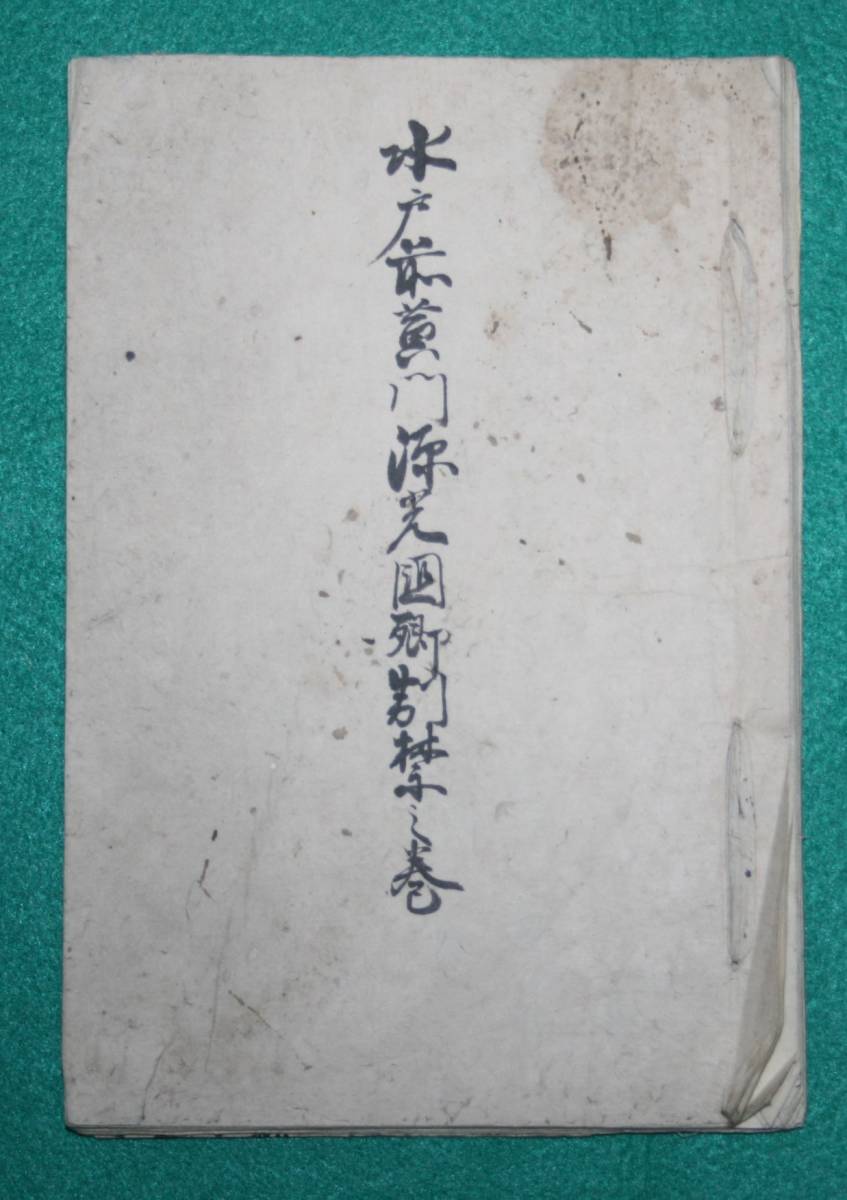 水戸前黄門源光圀卿制禁之巻